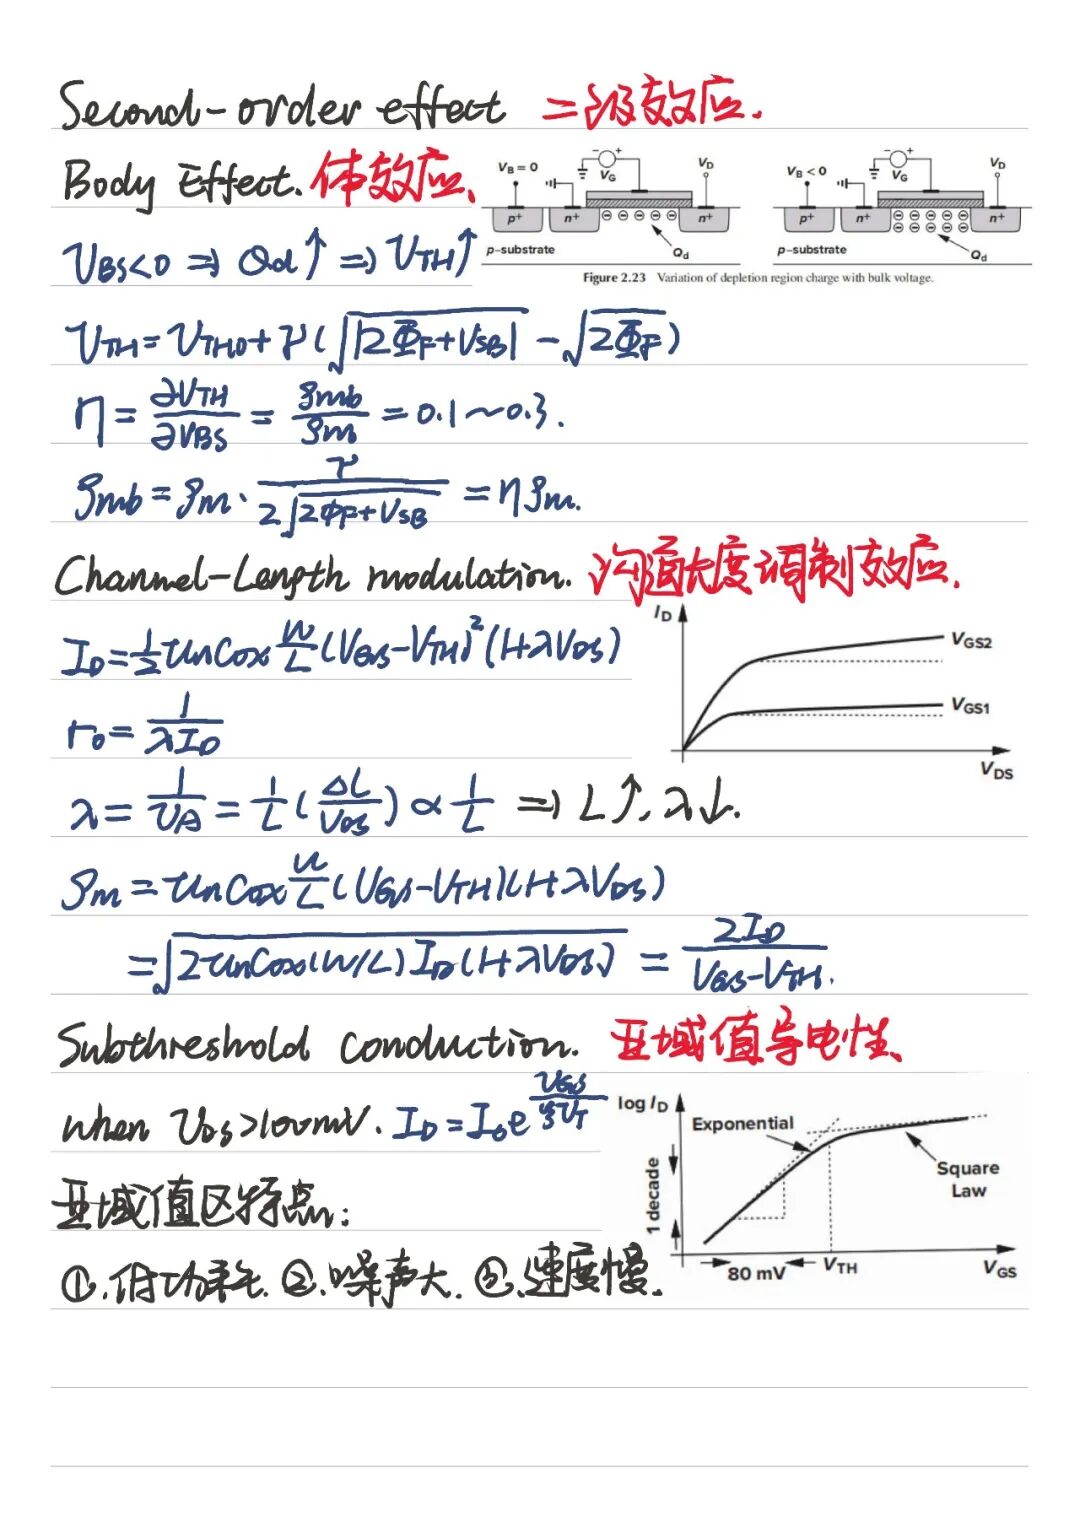 Second-order effect 二级效应.
Body Effect. 体效应、
V_B = 0 V_G V_D
p+ n+ n+
p-substrate Q_d
V_B < 0 V_G V_D
p+ n+ n+
p-substrate Q_d
Figure 2.23 Variation of depletion region charge with bulk voltage.
V_BS<0 ⇒ Q_d↑ ⇒ V_TH↑
V_TH = V_TH0 + γ(√|2Φ_F+V_SB| - √2Φ_F)
η = ∂V_TH/∂V_BS = g_mb/g_m = 0.1~0.3.
g_mb = g_m · γ/(2√(2Φ_F+V_SB)) = ηg_m.
Channel-Length modulation. 沟道长度调制效应.
I_D = 1/2 μnCox W/L (V_GS-V_TH)²(1+λV_DS)
r_o = 1/(λI_D)
I_D
V_GS2
V_GS1
V_DS
λ = 1/V_A = 1/L (ΔL/V_DS) ∝ 1/L ⇒ L↑, λ↓.
g_m = μnCox W/L (V_GS-V_TH)(1+λV_DS)
= √(2μnCox(W/L)I_D(1+λV_DS)) = 2I_D/(V_GS-V_TH).
Subthreshold conduction. 亚域值导电性、
when V_DS>100mV. I_D = I_0 e^(V_GS/(ξV_T))
log I_D
Exponential
Square
Law
1 decade
80 mV
V_TH
V_GS
亚域值区特点:
①.低功耗. ②.噪声大. ③.速度慢.